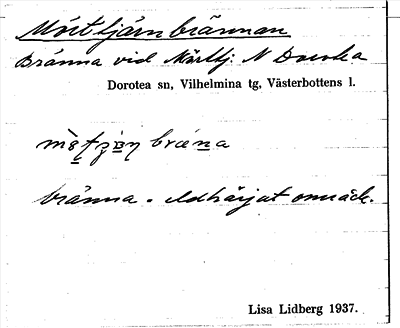 Mörttjärnbrännan
Bränna vid Mörttj: N Dorotea
Dorotea sn, Vilhelmina tg, Västerbottens l.
bränna = eldhärjat område.
Lisa Lidberg 1937.